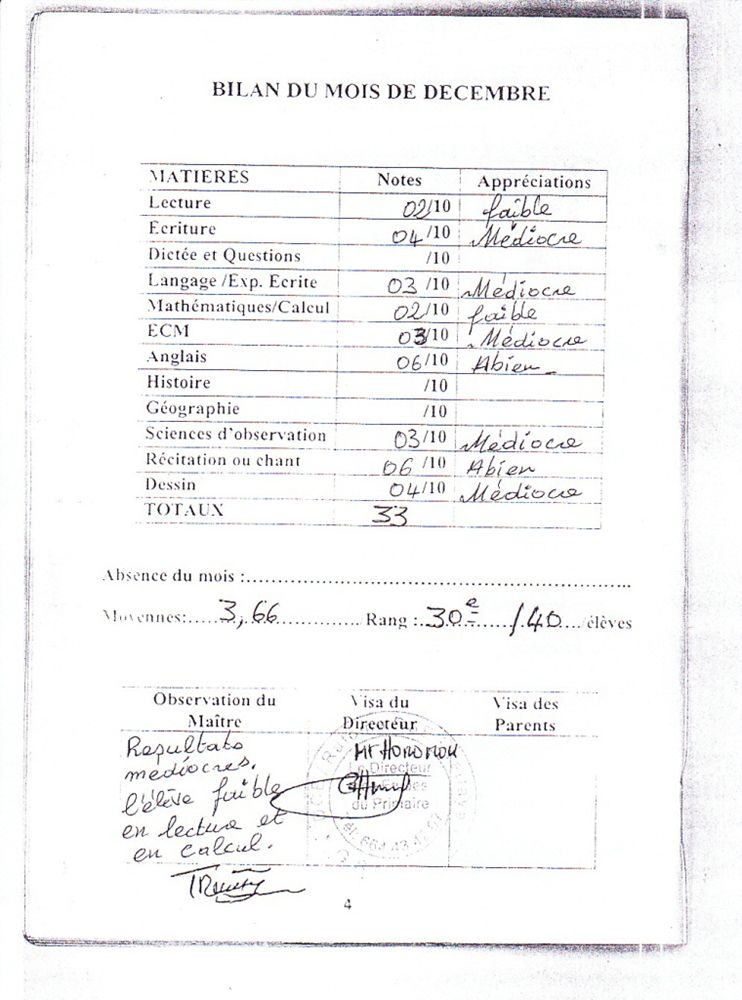 BILAN DU MOIS DE DECEMBRE
MATIERES Notes Appréciations
Lecture 02/10 faible
Ecriture 04/10 Médiocre
Dictée et Questions /10
Langage /Exp. Ecrite 03/10 Médiocre
Mathématiques/Calcul 02/10 faible
ECM 03/10 Médiocre
Anglais 06/10 Abien
Histoire /10
Géographie /10
Sciences d'observation 03/10 Médiocre
Récitation ou chant 06/10 Abien
Dessin 04/10 Médiocre
TOTAUX 33
Absence du mois :
Moyennes: 3,66 Rang : 30e /40 élèves
Observation du Maître
Visa du Directeur
Visa des Parents
Resultats
mediocres.
l'élève faible
en lecture et
en calcul.
Mr
Le Directeur
du Primaire
4